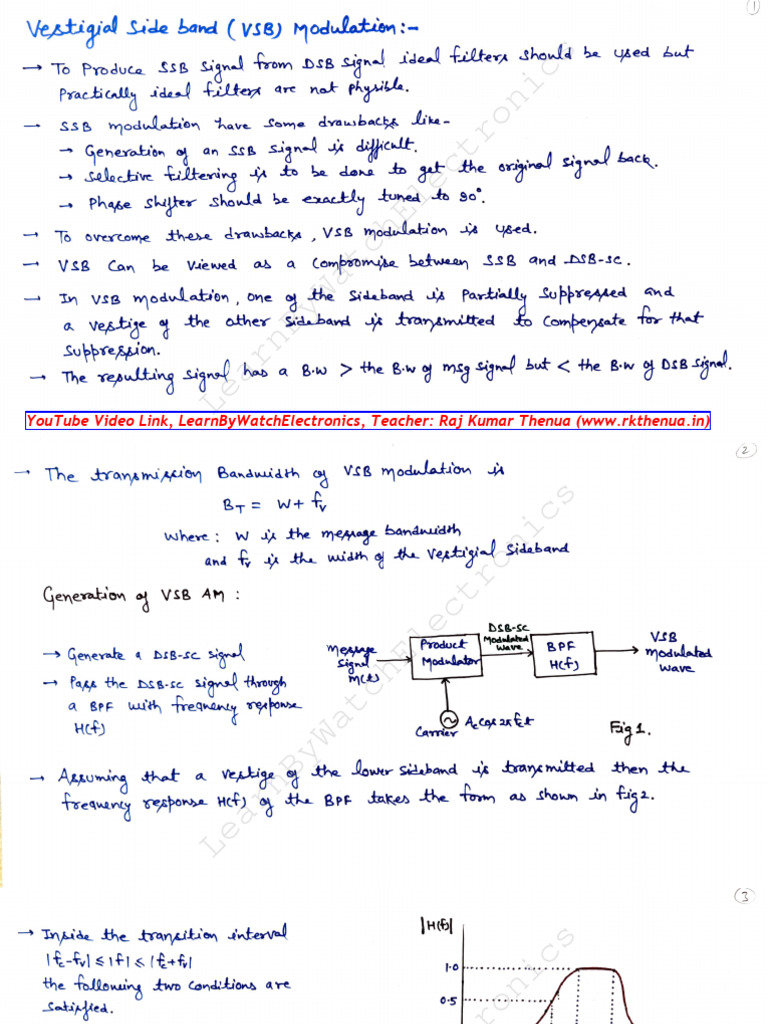 ①
Vestigial Side band (VSB) Modulation:-
→ To Produce SSB Signal from DSB Signal ideal filters should be used but
Practically ideal filters are not physible.
→ SSB modulation have some drawbacks like-
→ Generation of an SSB Signal is difficult.
→ Selective filtering is to be done to get the original signal back.
→ Phase Shifter should be exactly tuned to 90°.
→ To overcome these drawbacks, VSB modulation is used.
→ VSB Can be viewed as a Compromise between SSB and DSB-SC.
→ In VSB modulation, one of the Sideband is Partially Suppressed and
a vestige of the other Sideband is transmitted to Compensate for that
Suppression.
→ The resulting Signal has a B.W > the B.W of msg signal but < the B.W of DSB Signal.
LearnByWatchElectronics
YouTube Video Link, LearnByWatchElectronics, Teacher: Raj Kumar Thenua (www.rkthenua.in)
②
→ The transmission Bandwidth of VSB modulation is
B_T = W + f_v
Where: W is the message bandwidth
and f_v is the width of the Vestigial Sideband
Generation of VSB AM :
→ Generate a DSB-SC Signal
→ Pass the DSB-SC signal through
a BPF with frequency response
H(f)
Message
Signal
m(t)
Product
Modulator
DSB-SC
Modulated
Wave
BPF
H(f)
VSB
modulated
Wave
Carrier
A_c Cos 2π f_c t
Fig 1.
→ Assuming that a vestige of the lower Sideband is transmitted then the
frequency response H(f) of the BPF takes the form as shown in fig 2.
LearnByWatchElectronics
③
→ Inside the transition interval
|f_c-f_v| ≤ |f| ≤ |f_c+f_v|
the following two conditions are
satisfied.
|H(f)|
1.0
0.5
ronics